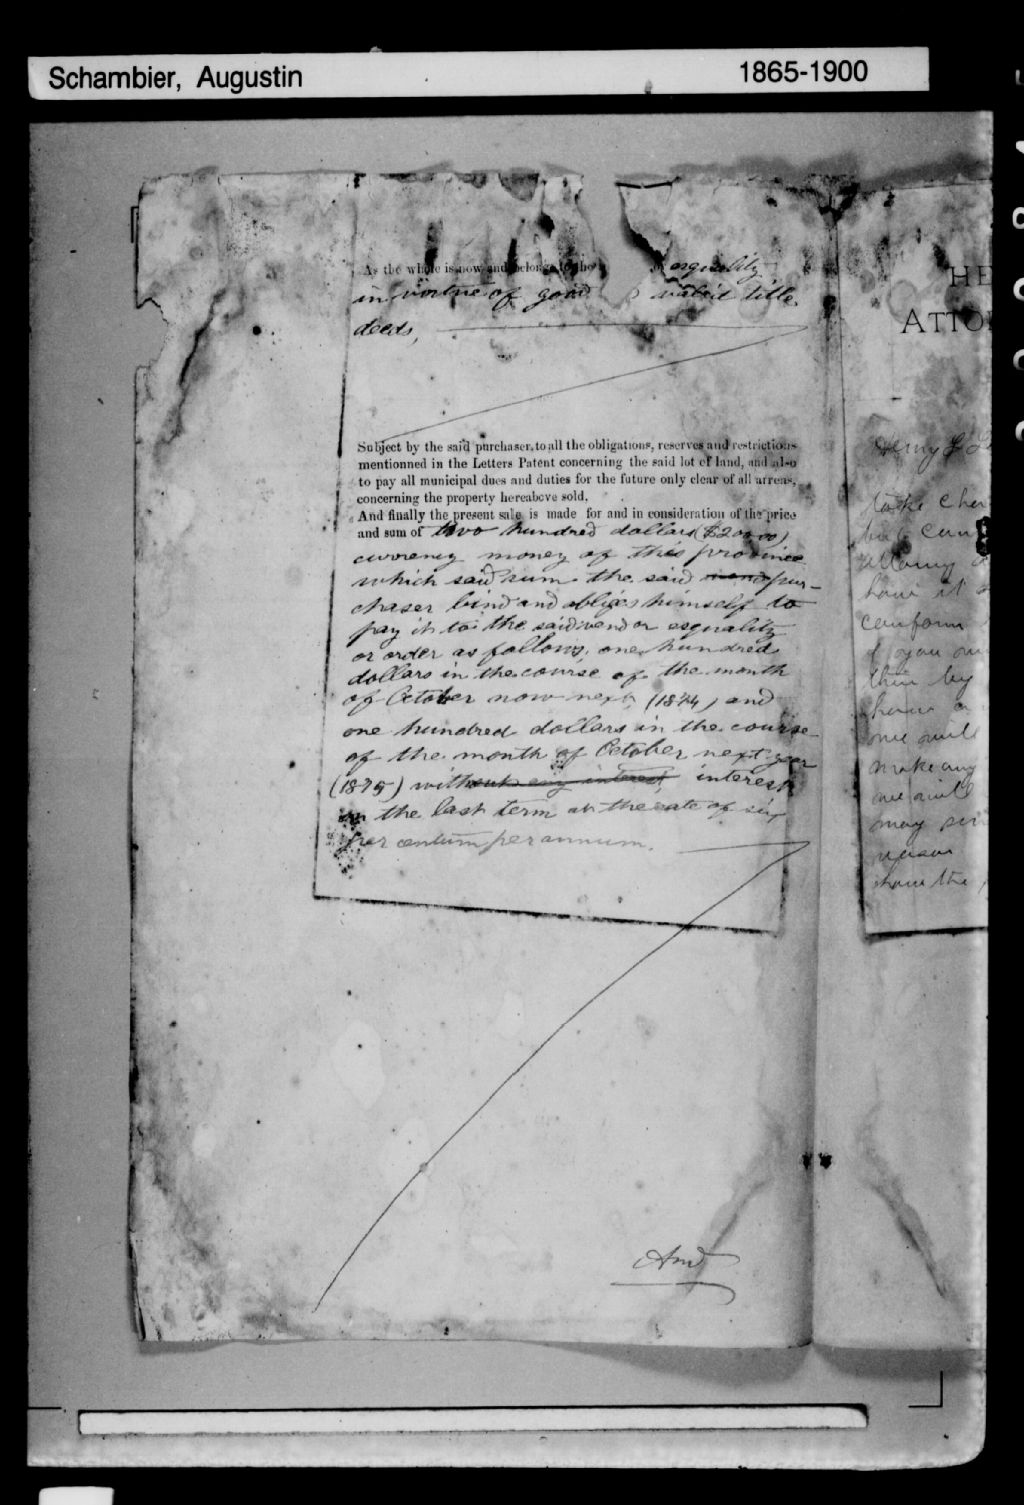 Schambier, Augustin 1865-1900
As the whole is now and belongs to the esquality
in virtue of good valid title
deeds,
Subject by the said purchaser, to all the obligations, reserves and restrictions
mentionned in the Letters Patent concerning the said lot of land, and also
to pay all municipal dues and duties for the future only clear of all arrears,
concerning the property hereabove sold.
And finally the present sale is made for and in consideration of the price
and sum of two hundred dollars ($200.00)
currency money of this province
which said sum the said pur-
chaser bind and obliges himself to
pay it to the said vendor esquality
or order as follows, one hundred
dollars in the course of the month
of October now next (1874) and
one hundred dollars in the course
of the month of October next year
(1875) without any interest interest
on the last term at the rate of six
per centum per annum.
And
HE
ATTO
Henry
take cha
but can
have it
conform
if you
this by
have a
we will
make any
we will
may
reason
have the